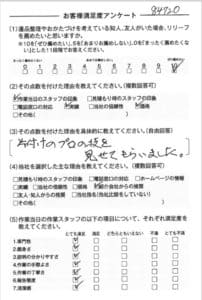 84720
お客様満足度アンケート
(1)遺品整理やおかたづけを考えている知人、友人がいた場合、リリーフ
を薦めたいと思いますか。
※10を「ぜひ薦めたい」、5を「あまりお薦めしない」、0を「まったく薦めたくな
い」とした11段階でお答えください。
0 1 2 3 4 5 6 7 8 9 10
(2)その点数を付けた理由を教えてください。(複数回答可)
作業当日のスタッフの印象 □見積もり時のスタッフの印象
□電話窓口の対応 □実績 □当社の信頼性 □価格
□その他(
(3)その点数を付けた理由を具体的に教えてください。(自由回答)
お片付けのプロの技を
見せてもらいました。
(4)当社を選択した主な理由を教えてください。(複数回答可)
□見積もり時のスタッフの印象 □電話窓口の対応 □ホームページの情報
□実績 □当社の信頼性 □価格 紹介会社からの推薦
□友人・知人からの推薦
□その他(
(5)作業当日の作業スタッフの以下の項目について、それぞれ満足度を
教えてください。
とても満足 満足 どちらともいえない 不満 とても不満
1.専門性
2.礼儀さ
3.説明の分かりやすさ
4.作業の手際よさ
5.作業の丁寧さ
6.報告頻度
7.清潔感